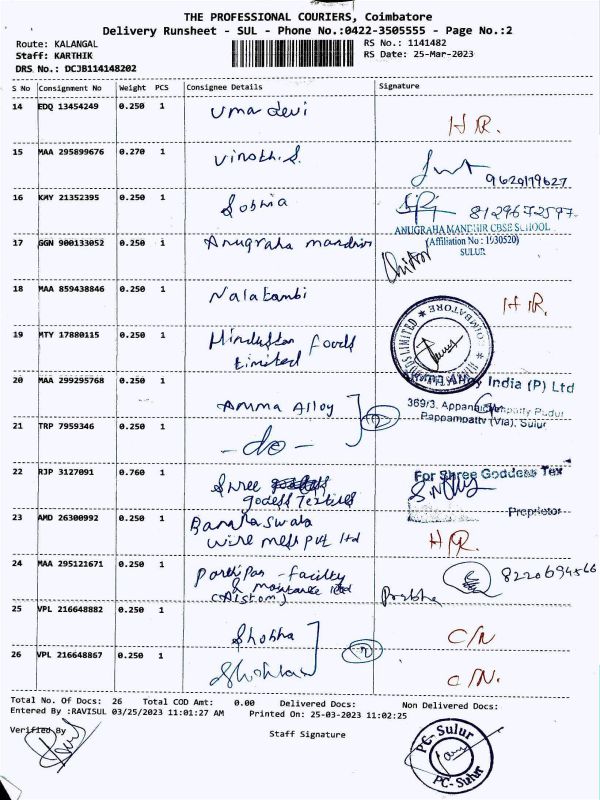 THE PROFESSIONAL COURIERS, Coimbatore
Delivery Runsheet - SUL - Phone No.:0422-3505555 - Page No.:2
Route: KALANGAL
RS No.: 1141482
Staff: KARTHIK
RS Date: 25-Mar-2023
DRS No.: DCJB114148202
S No Consignment No Weight PCS Consignee Details Signature
14 EDQ 13454249 0.250 1 Uma devi H R.
15 MAA 295899676 0.270 1 Vinoth.S. 9629179627
16 KMY 21352395 0.250 1 Sobhia 8129672597
ANUGRAHA MANDHIR CBSE SCHOOL
17 GGN 900133052 0.250 1 Anugraha mandhir (Affiliation No : 1930520)
SULUR
18 MAA 859438846 0.250 1 Nalatambi H R.
19 MTY 17880115 0.250 1 Hindustan foods
Limited
20 MAA 299295768 0.250 1 Amma Alloy India (P) Ltd
369/3, Appanaickenpatty Pudur
Pappampatty (Via), Sulur
21 TRP 7959346 0.250 1 - do - 2
22 RJP 3127091 0.760 1 Shree For Shree Goddess Tex
godess Textiles
Proprietor
23 AMD 26300992 0.250 1 Banaraswala
wire mesh pvt ltd H R.
24 MAA 295121671 0.250 1 Parthipan - facility 8220694566
Prabha
25 VPL 216648882 0.250 1 Shobha C/N
2
26 VPL 216648867 0.250 1 C/N.
Total No. Of Docs: 26 Total COD Amt: 0.00 Delivered Docs: Non Delivered Docs:
Entered By :RAVISUL 03/25/2023 11:01:27 AM Printed On: 25-03-2023 11:02:25
Verified By
Staff Signature
PC- Sulur
PC- Sulur